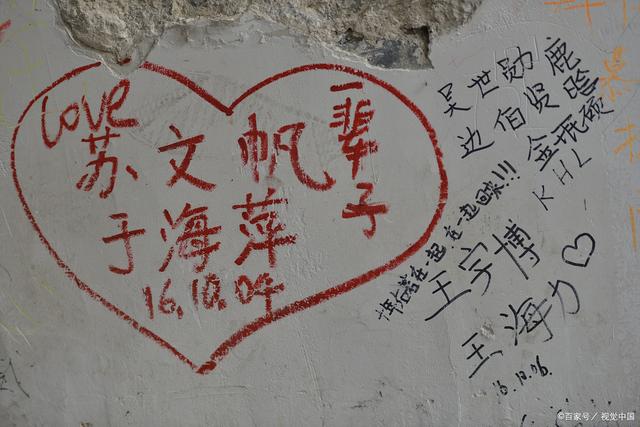 love
苏文帆
一辈子
于海萍
16.10.04
吴世勋 鹿晗
边伯贤
金珉硕
KHL
王宇博
王海力
16.10.06.
©百家号／视觉中国